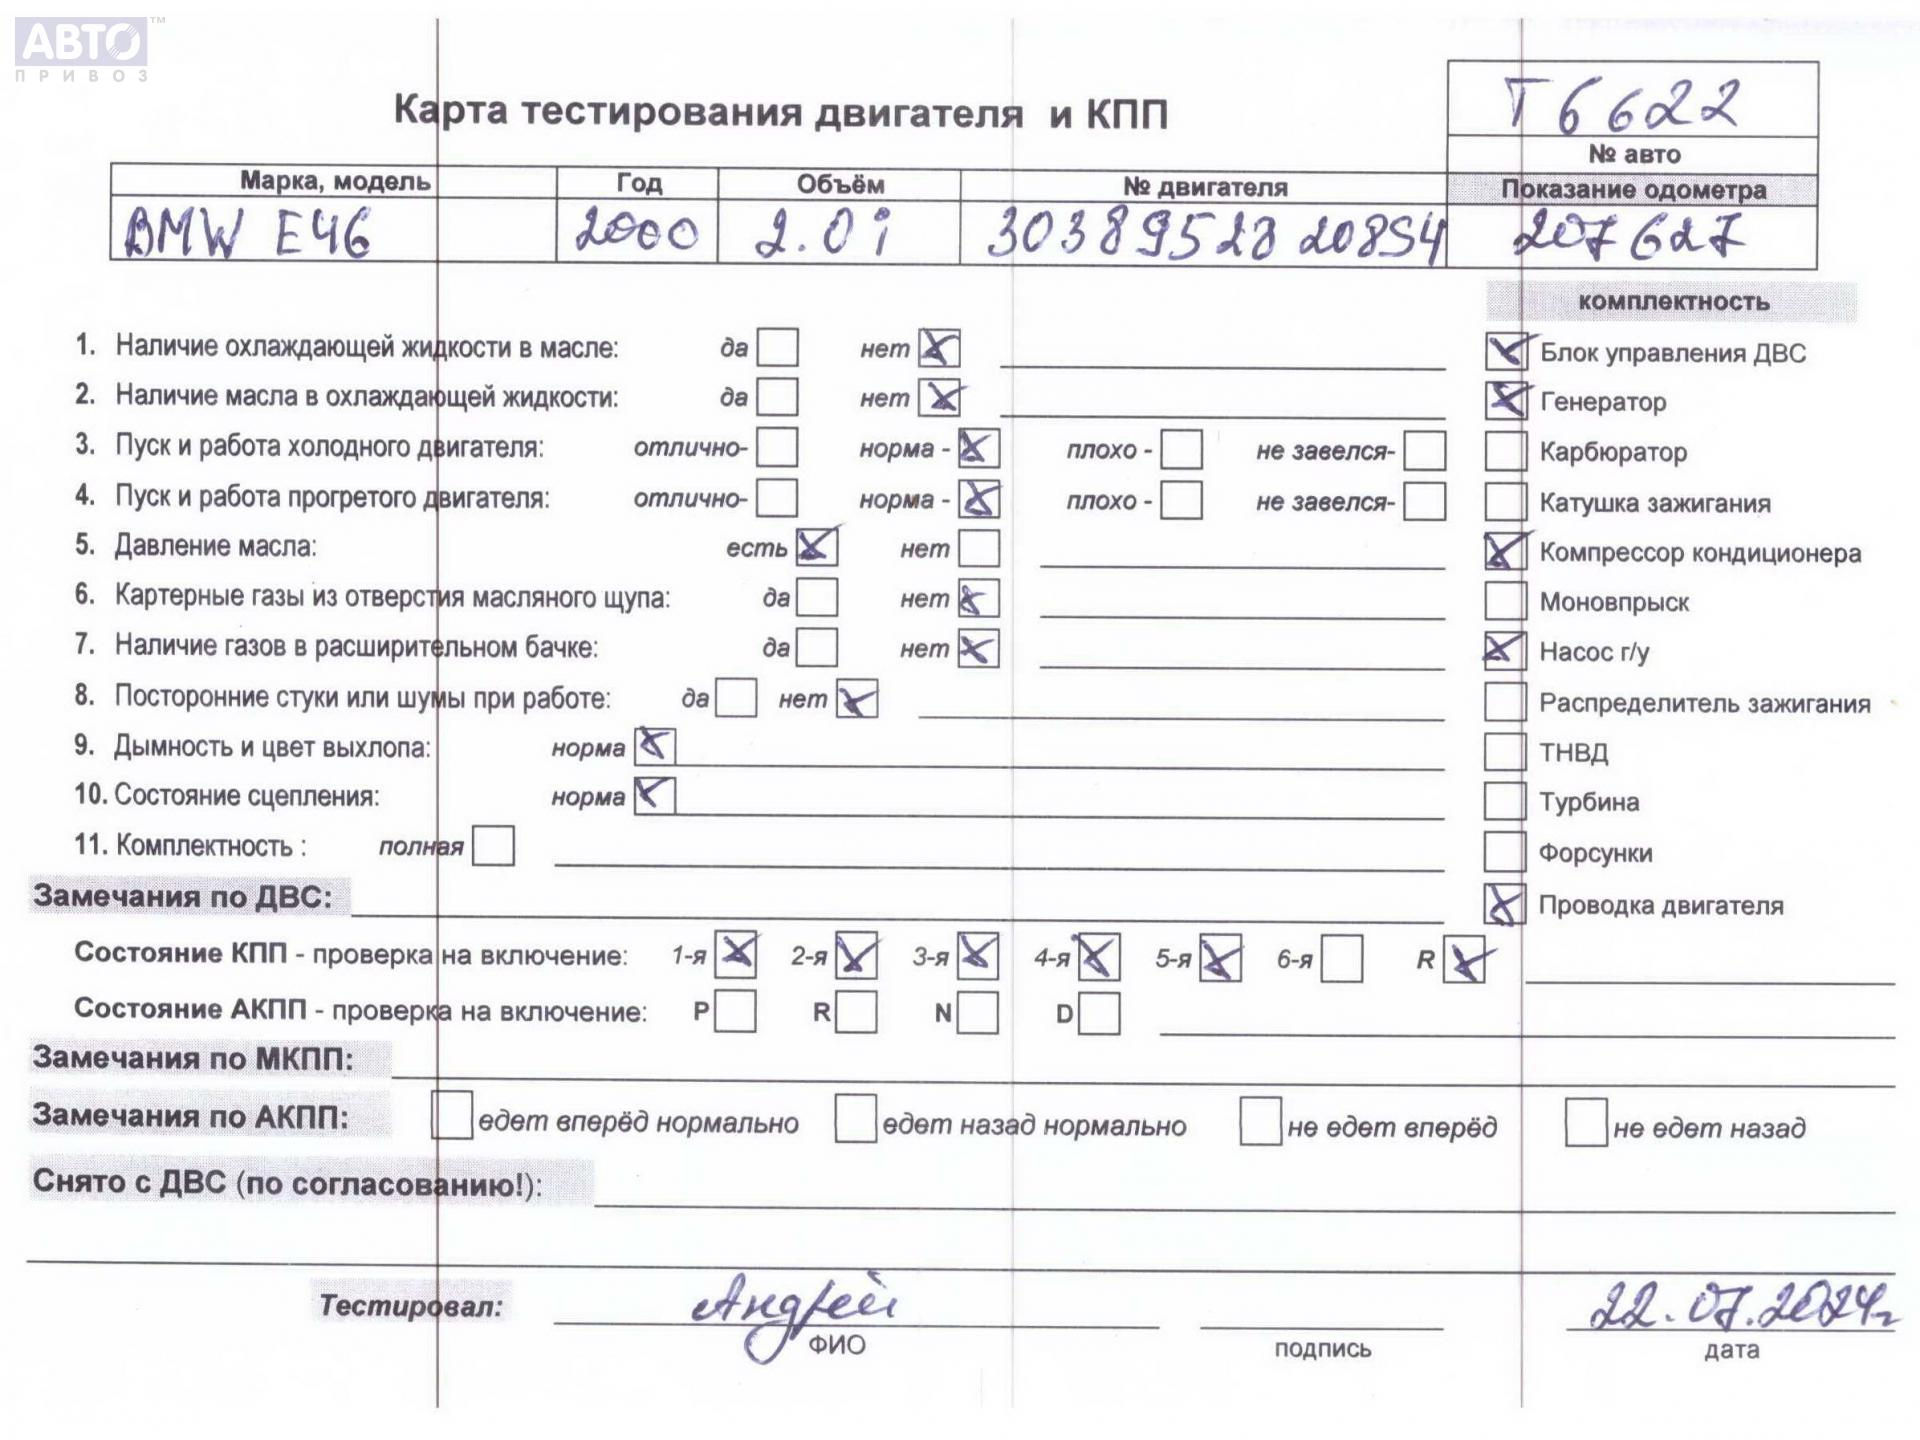 АВТО™
ПРИВОЗ
Т6622
Карта тестирования двигателя и КПП
№ авто
Марка, модель Год Объём № двигателя Показание одометра
BMW E46 2000 2.0i 30389523 208S4 207627
комплектность
1. Наличие охлаждающей жидкости в масле: да нет Блок управления ДВС
2. Наличие масла в охлаждающей жидкости: да нет Генератор
3. Пуск и работа холодного двигателя: отлично- норма - плохо - не завелся- Карбюратор
4. Пуск и работа прогретого двигателя: отлично- норма - плохо - не завелся- Катушка зажигания
5. Давление масла: есть нет Компрессор кондиционера
6. Картерные газы из отверстия масляного щупа: да нет Моновпрыск
7. Наличие газов в расширительном бачке: да нет Насос г/у
8. Посторонние стуки или шумы при работе: да нет Распределитель зажигания
9. Дымность и цвет выхлопа: норма ТНВД
10. Состояние сцепления: норма Турбина
11. Комплектность : полная Форсунки
Замечания по ДВС: Проводка двигателя
Состояние КПП - проверка на включение: 1-я 2-я 3-я 4-я 5-я 6-я R
Состояние АКПП - проверка на включение: P R N D
Замечания по МКПП:
Замечания по АКПП: едет вперёд нормально едет назад нормально не едет вперёд не едет назад
Снято с ДВС (по согласованию!):
Тестировал: Андрей 22.07.2024г
ФИО подпись дата